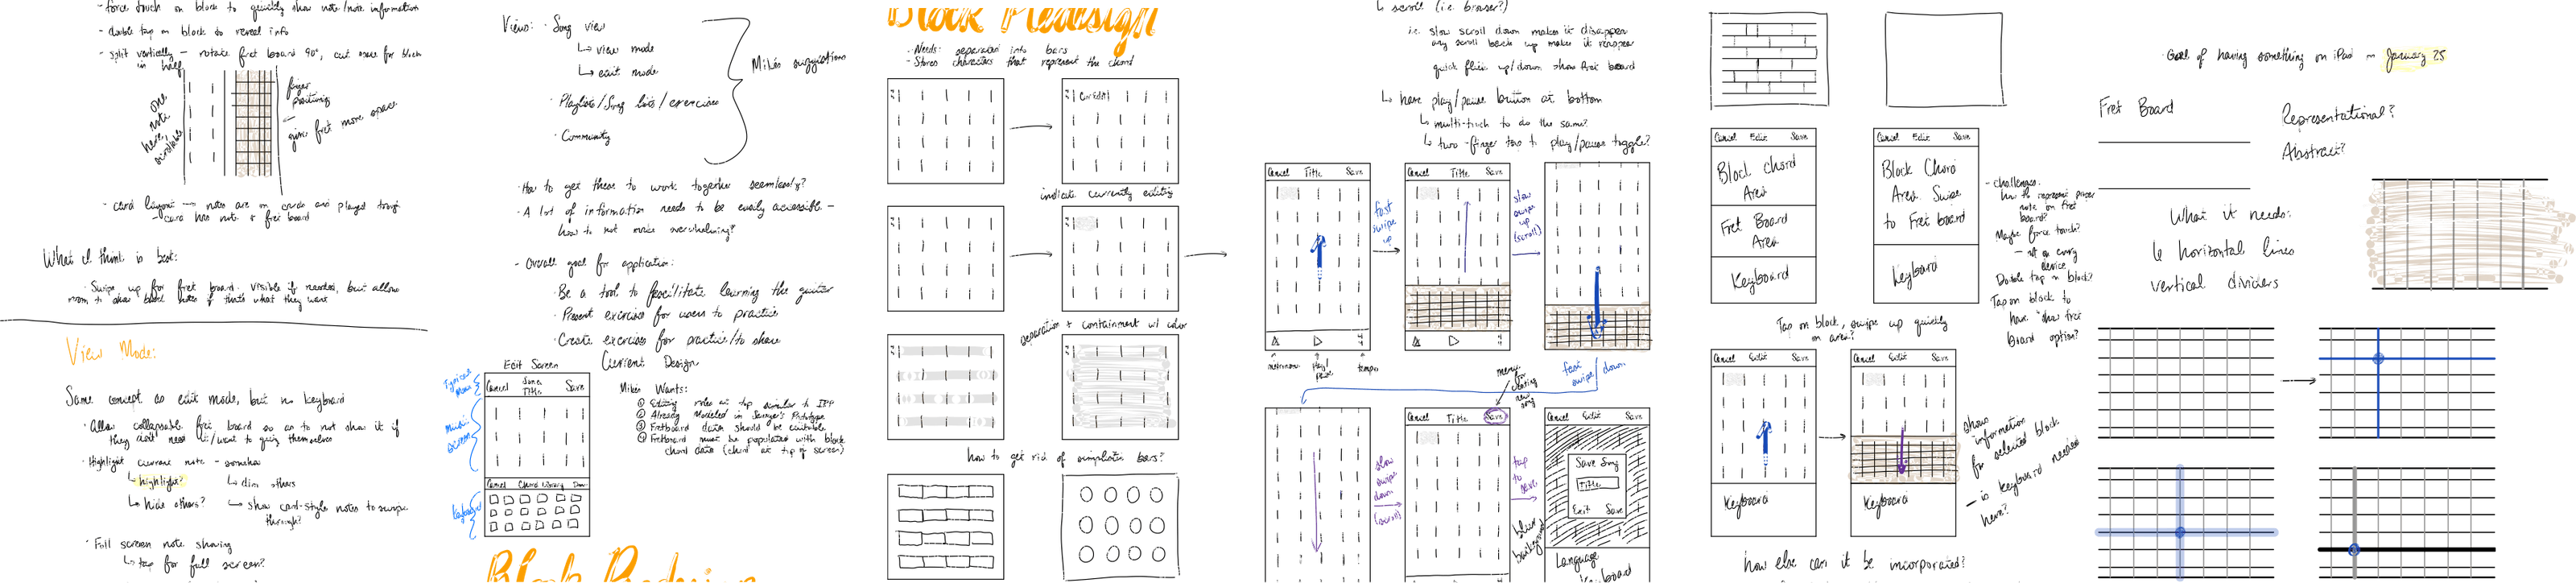 - force touch on block to quickly show note/note information
- double tap on block to reveal info
- split vertically - rotate fret board 90°, cut space for block
in half
one
note
here,
scrollable
finger
positioning
give fret more space
- card layout - notes are on cards and played through
- card has note + fret board
What I think is best:
Swipe up for fret board. Visible if needed, but allow
room to show block notes if that's what they want
View Mode:
Same concept as edit mode, but no keyboard
Allow collapsable fret board so as to not show it if
they don't need it/want to quiz themselves
Highlight current note - somehow
highlight?
dim others
hide others?
show card-style notes to swipe
through?
Full screen note showing
tap for full screen?
Views:
Song view
view mode
edit mode
Playlists/Song lists/exercises
Community
Mike's suggestions
How to get these to work together seemlessly?
- A lot of information needs to be easily accessible -
how to not make overwhelming?
- Overall goal for application:
Be a tool to facilitate learning the guitar
Present exercises for users to practice
Create exercises for practice/to share
Edit Screen
Current Design
Typical
Nav
Music
Screen
Keyboard
Cancel
Song
Title
Save
Cancel
Chord Library
Done
Mike Wants:
① Editing notes at top similar to
② Already Modeled in Sawyer's Prototype
③ Fretboard
should be editable
④ Fretboard must be populated with block
chord data (chord at top of screen)
Block Redesign
Block Redesign
- Needs: separation into bars
- Stores characters that represent the chord
indicate currently editing
separation + containment w/ color
how to get rid of simplistic bars?
scroll (i.e. browser?)
i.e. slow scroll down makes it disappear
any scroll back up makes it reappear
quick flick up/down show fret board
have play/pause button at bottom
multi-touch to do the same?
two-finger tap to play/pause toggle?
Cancel Title Save
Cancel Title Save
fast
swipe
up
slow
swipe
up
(scroll)
metronome
play/
pause
tempo
fast
swipe down
menu
for
creating
new
song
slow
swipe
down
(scroll)
Cancel Title Save
tap
to
save
blur
background
Cancel Edit Save
Save Song
Title
Exit Save
Language
Keyboard
Cancel Edit Save
Block Chord
Area
Fret Board
Area
Keyboard
Cancel Edit Save
Block Chord
Area. Swipe
to Fret board
Keyboard
- challenges:
how to represent
note on fret
board?
Maybe force touch?
- not on every
device
Double tap on block?
Tap on block to
have "show fret
board option?
Tap on block, swipe up quickly
on area?
Cancel Edit Save
Keyboard
Cancel Edit Save
Keyboard
show
information
for selected block
- is keyboard needed
here?
how else can it be incorporated?
Goal of having something on iPad on January 25
Fret Board
Representational?
Abstract?
What it needs:
6 horizontal lines
vertical dividers